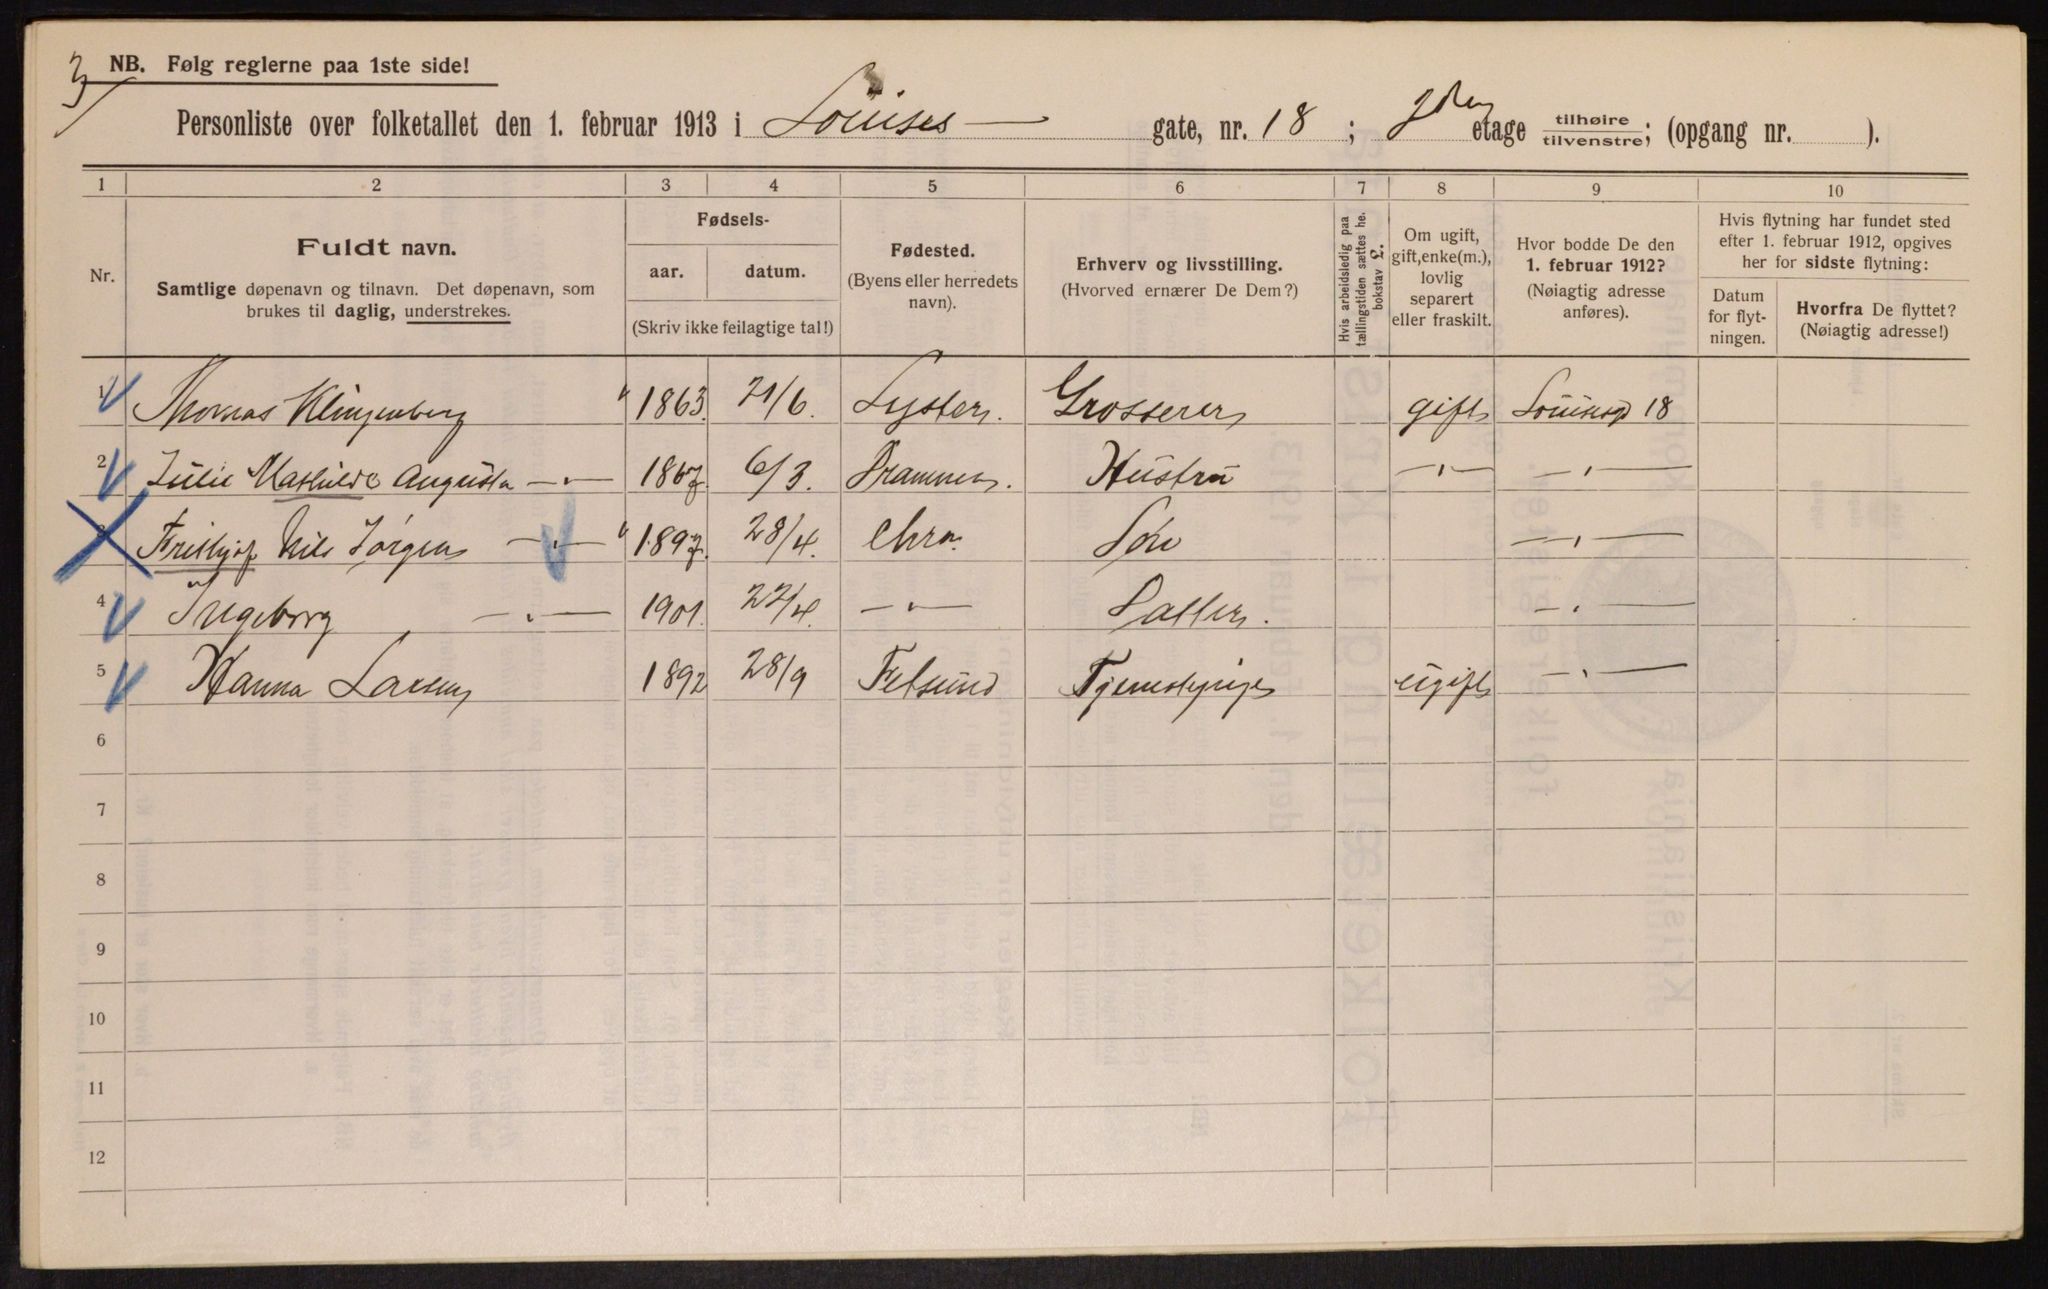 3/
NB. Følg reglerne paa 1ste side!
Personliste over folketallet den 1. februar 1913 i Louises — gate, nr. 18 ; etage tilhøire tilvenstre; (opgang nr. ).
1 2 3 4 5 6 7 8 9 10
Nr.
Fuldt navn.
Samtlige døpenavn og tilnavn. Det døpenavn, som
brukes til daglig, understrekes.
Fødsels-
aar. datum.
(Skriv ikke feilagtige tal!)
Fødested.
(Byens eller herredets
navn).
Erhverv og livsstilling.
(Hvorved ernærer De Dem?)
Hvis arbeidsledig paa
tællingstiden sættes her
bokstav L.
Om ugift,
gift, enke(m.),
lovlig
separert
eller fraskilt.
Hvor bodde De den
1. februar 1912?
(Nøiagtig adresse
anføres).
Hvis flytning har fundet sted
efter 1. februar 1912, opgives
her for sidste flytning:
Datum
for flyt-
ningen.
Hvorfra De flyttet?
(Nøiagtig adresse!)
1 Thomas Klingenberg " 1863. 21/6. Lyster. Grosserer gift Louisesgd 18
2 Julie Mathilde Augusta —"— 1867 6/3. Drammen. Hustru —"— —"—
3 Frithjof Nils Jørgen —"— " 1897. 28/4. Chra. Søn —"—
4 Ingeborg —"— 1901. 22/4. —"— Datter. —"—
5 Hanna Larsen 1892 28/9 Felsund Tjenestepige ugift —"—
6
7
8
9
10
11
12